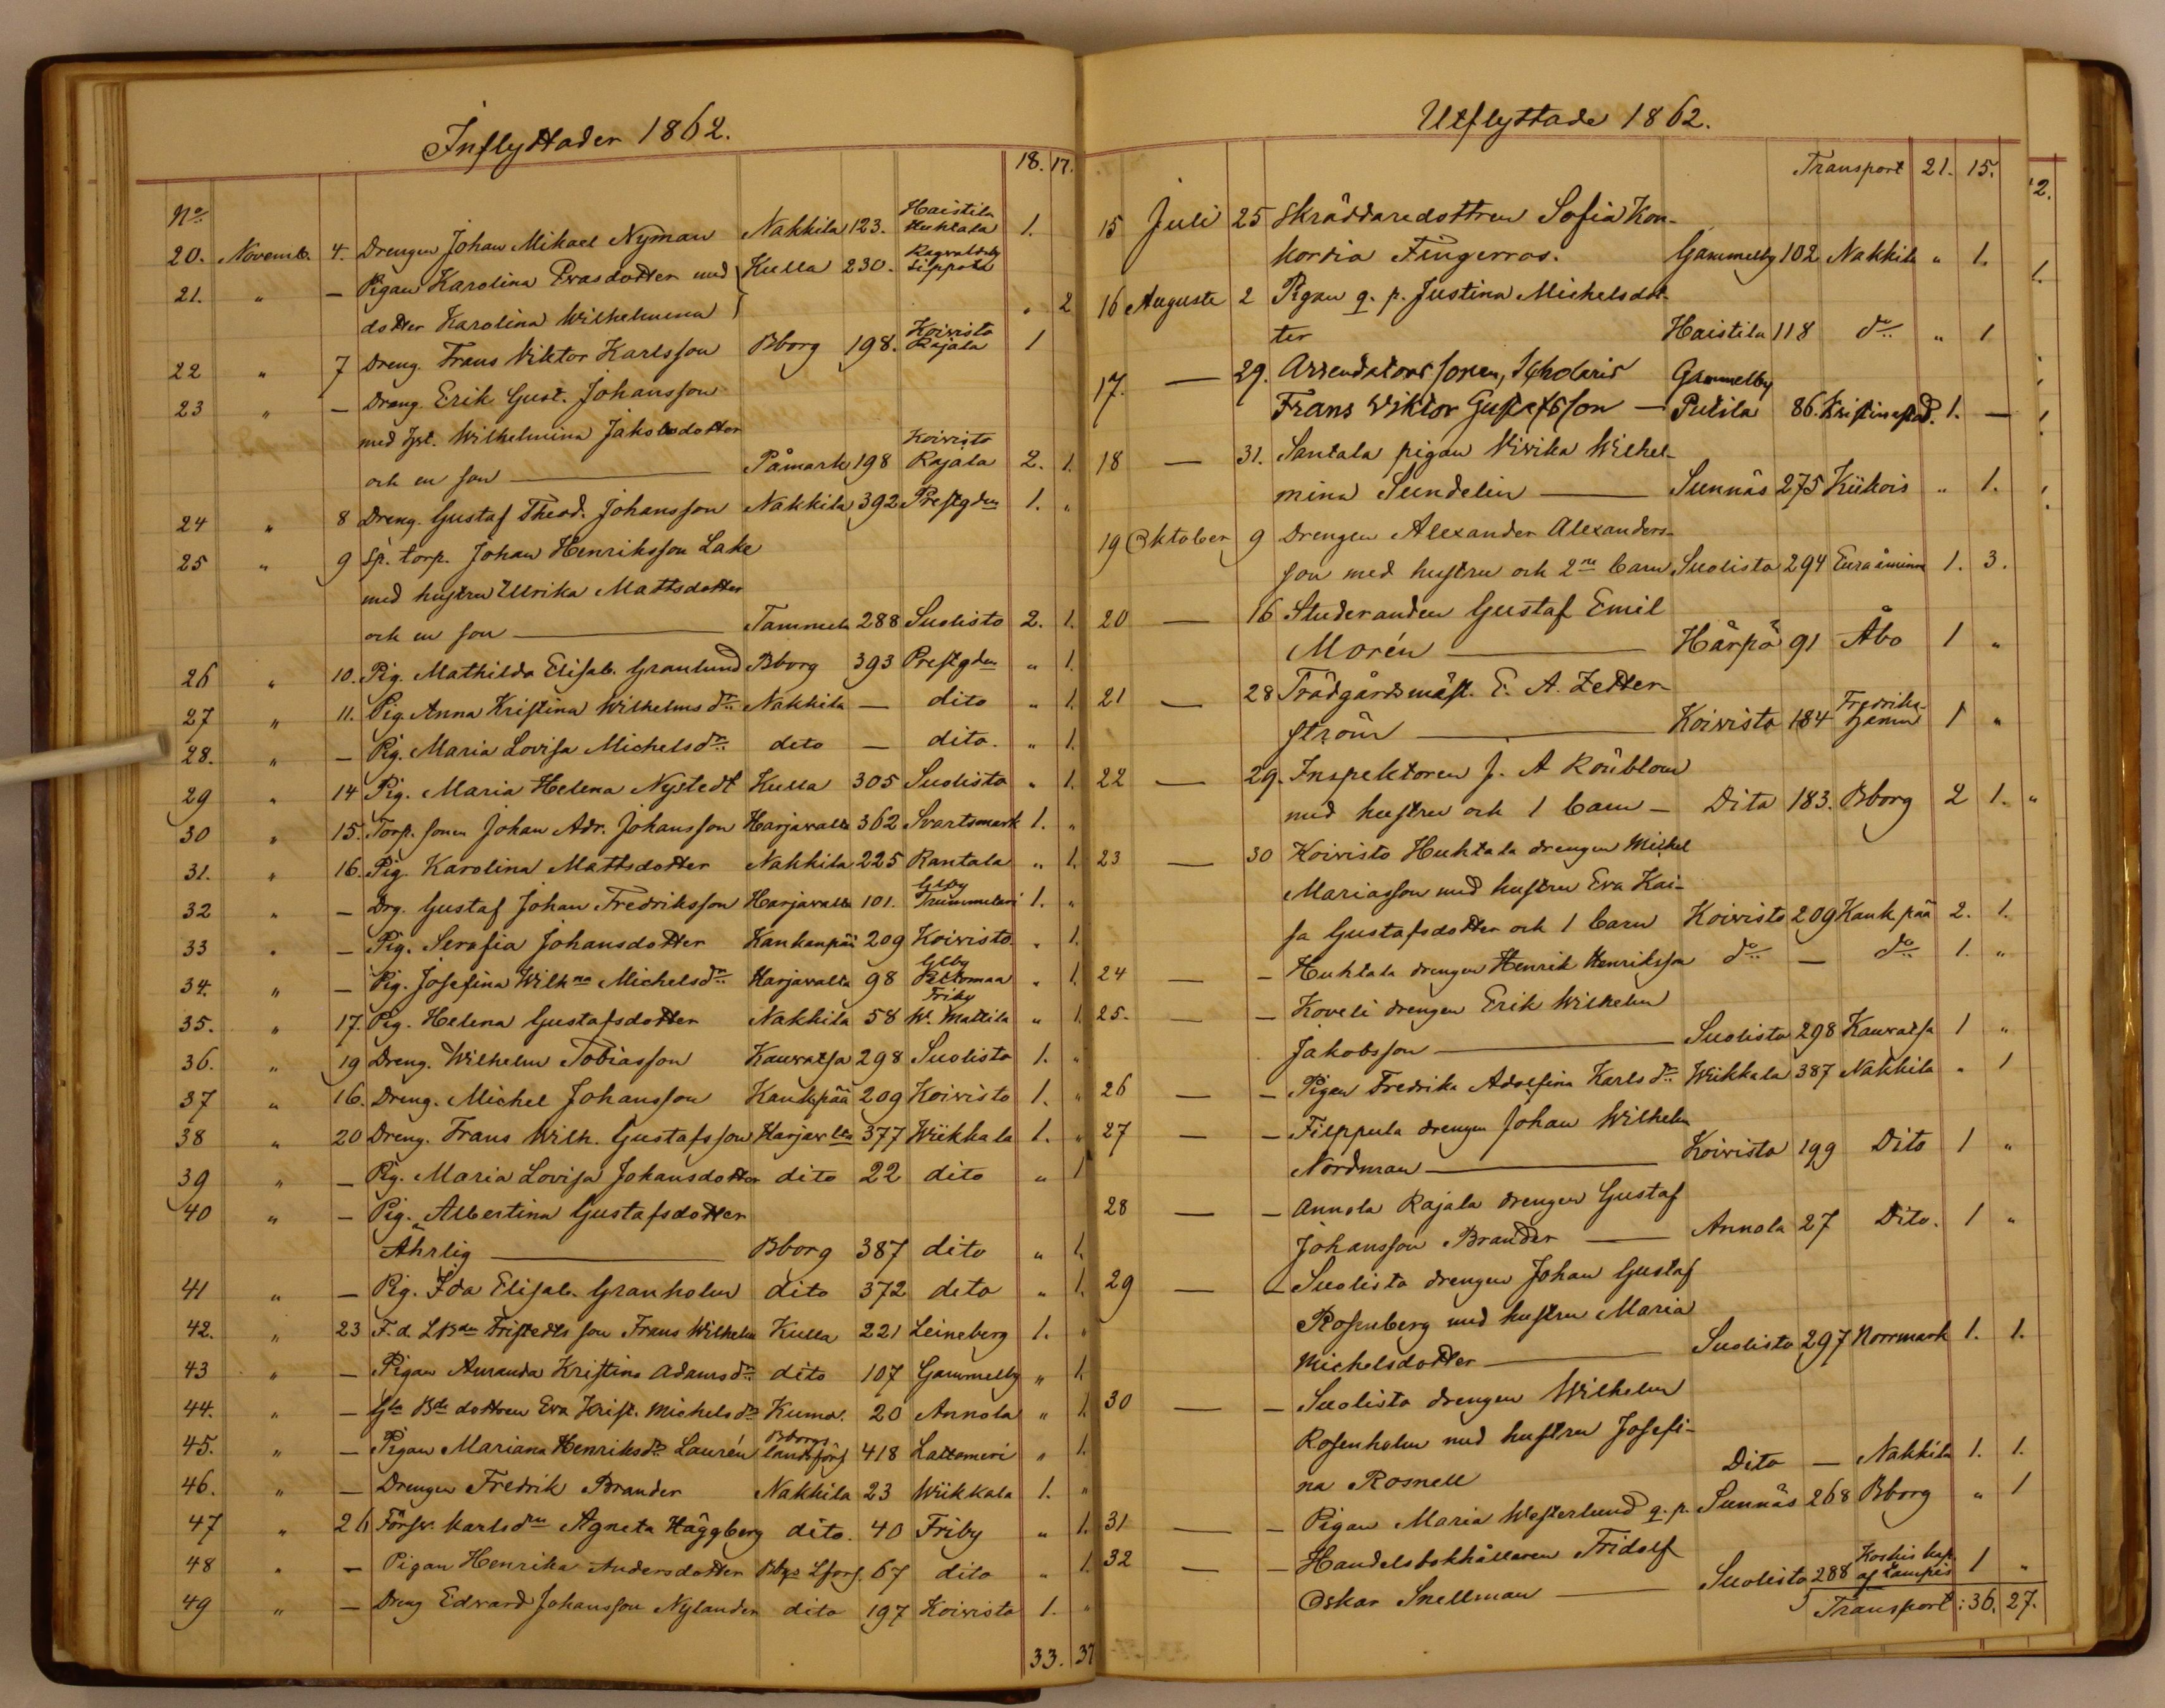 Inflyttader 1862.
18. 17.
No
20. Novemb. 4. Drengen Johan Mikael Nyman Nakkila 123. Haistila Huhtala 1.
21. " — Pigan Karolina Evasdotter med Kulla 230. Ragvaldsby Sippola
dotter Karolina Wilhelmina " 2
22 " 7 Dreng. Frans Viktor Karlsson Bborg 198. Koivisto Rajala 1
23 " — Dreng. Erik Gust. Johansson
med hst. Wilhelmina Jakobsdotter
och en son — Påmark 198 Koivisto Rajala 2. 1.
24 " 8 Dreng. Gustaf Theod. Johansson Nakkila 392 Prestgden 1. "
25 " 9 Sp. torp. Johan Henriksson Lake
med hustru Ulrika Mattsdotter
och en son — Tammela 288 Suolisto 2. 1.
26 " 10. Pig. Mathilda Elisab. Granlund Bborg 393 Prestgden " 1.
27 " 11. Pig. Anna Kristina Wilhelms dr Nakkila — dito " 1.
28. " — Pig. Maria Lovisa Michels dr dito — dito. " 1.
29 " 14 Pig. Maria Helena Nystedt Kulla 305 Suolisto " 1.
30 " 15. Torp. sonen Johan Adr. Johansson Harjavalla 362 Svartsmark 1. "
31. " 16. Pig. Karolina Mattsdotter Nakkila 225 Rantala " 1.
32 " — Drg. Gustaf Johan Fredriksson Harjavalla 101. Glby Trummelari 1. "
33 " — Pig. Serafia Johansdotter Kankanpää 209 Koivisto " 1.
34. " — Pig. Josefina Wilhna Michels dr Harjavalla 98 Glby Peltomaa " 1.
35. " 17. Pig. Helena Gustafsdotter Nakkila 58 Friby W. Mattila " 1.
36. " 19 Dreng. Wilhelm Tobiasson Kauvatsa 298 Suolisto 1. "
37 " 16. Dreng. Michel Johansson Kankpää 209 Koivisto 1. "
38 " 20 Dreng. Frans Wilh. Gustafsson Harjavlla 377 Wiikkala 1. "
39 " — Pig. Maria Lovisa Johansdotter dito 22 dito " 1
40 " — Pig. Albertina Gustafsdotter
Ahrlig — Bborg 387 dito " 1.
41 " — Pig. Ida Elisab. Granholm dito 372 dito " 1.
42. " 23 F. d. Fristedts son Frans Wilhelm Kulla 221 Leineberg 1. "
43 " — Pigan Amanda Kristina Adams dr dito 107 Gammelby " 1.
44. " — Gla Bde dottren Eva Krist. Michels dr Kumo. 20 Annola " 1.
45. " — Pigan Mariana Henriks dr Laurén Bborgs landsförs 418 Lattomeri " 1.
46. " — Drengen Fredrik Brander Nakkila 23 Wiikkala 1. "
47 " 26 Förs. karls dr Agneta Häggberg dito. 40 Friby " 1.
48 " — Pigan Henrika Andersdotter Bbgs Lförs. 67 dito " 1.
49 " — Dreng Edward Johansson Nylander dito 197 Koivisto 1. "
33. 37
Utflyttade 1862.
Transport 21. 15.
15 Juli 25 Skräddaredottren Sofia Kon-
kordia Fingerroos. Gammelby 102 Nakkila " 1.
16 Augusti 2 Pigan q. p. Justina Michelsdot-
ter Haistila 118 do " 1
17. — 29. Arrendators sonen, Scholaris Gammelby
Frans Viktor Gustafsson — Putila 86. Kristinestad. 1. —
18 — 31. Santala pigan Vivika Wilhel-
mina Sundelin — Sunnäs 275 Kiikois " 1.
19 Oktober 9 Drengen Alexander Alexanders-
son med hustru och 2ne barn Suolisto 294 Euraåminne 1. 3.
20 — 16 Studeranden Gustaf Emil
Morén — Hårpö 91 Åbo 1 "
21 — 28 Trädgårdsmäst. E. A. Zetter-
ström — Koivisto 184 Fredriks-hamn 1 "
22 — 29. Inspektoren J. A Rönblom
med hustru och 1 barn — Dito 183. Bborg 2 1. "
23 — 30 Koivisto Huhtala drengen Mickel
Mariasson med hustru Eva Kai-
sa Gustafsdotter och 1 barn Koivisto 209 Kankpää 2. 1.
24 — — Huhtala drengen Henrik Henriksson do — do 1. "
25. — — Koveli drengen Erik Wilhelm
Jakobsson — Suolisto 298 Kauvatsa 1 "
26 — — Pigan Fredrika Adolfina Karls dr Wiikkala 387 Nakkila " 1
27 — — Filppula drengen Johan Wilhelm
Nordman — Koivisto 199 Dito 1 "
28 — — Annola Rajala drengen Gustaf
Johansson Brander — Annola 27 Dito. 1 "
29 — — Suolisto drengen Johan Gustaf
Rosenberg med hustru Maria
Michelsdotter — Suolisto 297 Norrmark 1. 1.
30 — — Suolisto drengen Wilhelm
Rosenholm med hustru Josefi-
na Rosnell Dito — Nakkila 1. 1.
31 — — Pigan Maria Westerlund q. p. Sunnäs 268 Bborg " 1
32 — — Handelsbokhållaren Fridolf
Oskar Snellman — Suolisto 288 Koskis kap. af Lampis 1 "
Transport: 36. 27.